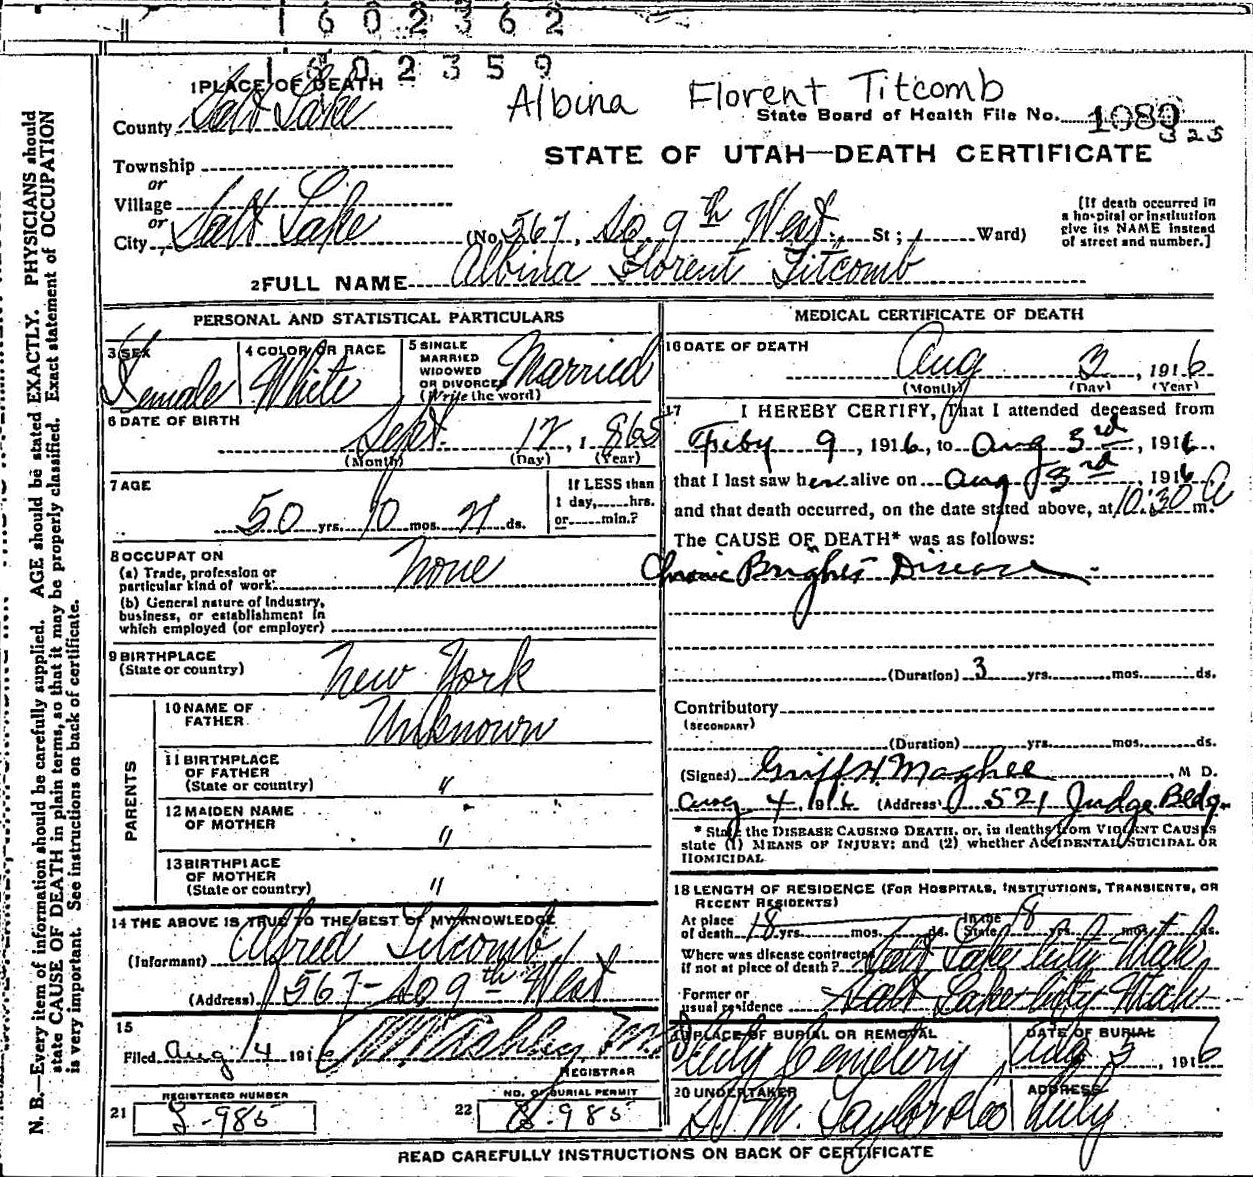 1602362
1602359
1 PLACE OF DEATH
Albina Florent Titcomb
County Salt Lake
State Board of Health File No. 1089
325
STATE OF UTAH—DEATH CERTIFICATE
Township
or
Village
or
City Salt Lake (No. 567, So 9th West St; Ward)
[If death occurred in a hospital or institution give its NAME instead of street and number.]
2 FULL NAME Albina Florent Titcomb
PERSONAL AND STATISTICAL PARTICULARS
3 SEX Female
4 COLOR OR RACE White
5 SINGLE MARRIED WIDOWED OR DIVORCED (Write the word) Married
6 DATE OF BIRTH Sept. 12, 1865
(Month) (Day) (Year)
7 AGE 50 yrs. 10 mos. 21 ds.
If LESS than 1 day, hrs. or min.?
8 OCCUPATION None
(a) Trade, profession or particular kind of work
(b) General nature of Industry, business, or establishment in which employed (or employer)
9 BIRTHPLACE (State or country) New York
PARENTS
10 NAME OF FATHER Unknown
11 BIRTHPLACE OF FATHER (State or country) "
12 MAIDEN NAME OF MOTHER "
13 BIRTHPLACE OF MOTHER (State or country) "
14 THE ABOVE IS TRUE TO THE BEST OF MY KNOWLEDGE
(Informant) Alfred Titcomb
(Address) 567 - So 9th West
15
Filed Aug 4 1916
REGISTRAR
REGISTERED NUMBER
21 S-985
NO. OF BURIAL PERMIT
22 S-985
MEDICAL CERTIFICATE OF DEATH
16 DATE OF DEATH Aug 3, 1916
(Month) (Day) (Year)
17 I HEREBY CERTIFY, That I attended deceased from
Feby 9, 1916, to Aug 3rd, 1916
that I last saw her alive on Aug 3rd 1916
and that death occurred, on the date stated above, at 10:30 A m.
The CAUSE OF DEATH* was as follows:
Chronic Brights Disease
(Duration) 3 yrs. mos. ds.
Contributory
(SECONDARY)
(Duration) yrs. mos. ds.
(Signed) Griff H. Maghee, M D.
Aug 4 1916 (Address) 521 Judge Bldg.
* State the DISEASE CAUSING DEATH, or, in deaths from VIOLENT CAUSES
state (1) MEANS OF INJURY; and (2) whether ACCIDENTAL, SUICIDAL OR
HOMICIDAL
18 LENGTH OF RESIDENCE (FOR HOSPITALS, INSTITUTIONS, TRANSIENTS, OR
RECENT RESIDENTS)
At place of death 18 yrs. mos. ds. In the State 18 yrs. mos. ds.
Where was disease contracted if not at place of death? Salt Lake City Utah
Former or usual residence Salt Lake City Utah
PLACE OF BURIAL OR REMOVAL City Cemetery
DATE OF BURIAL Aug 3, 1916
20 UNDERTAKER S. M. Taylor & Co
ADDRESS City
READ CAREFULLY INSTRUCTIONS ON BACK OF CERTIFICATE
N. B.—Every item of information should be carefully supplied. AGE should be stated EXACTLY. PHYSICIANS should
state CAUSE OF DEATH in plain terms, so that it may be properly classified. Exact statement of OCCUPATION
is very important. See instructions on back of certificate.